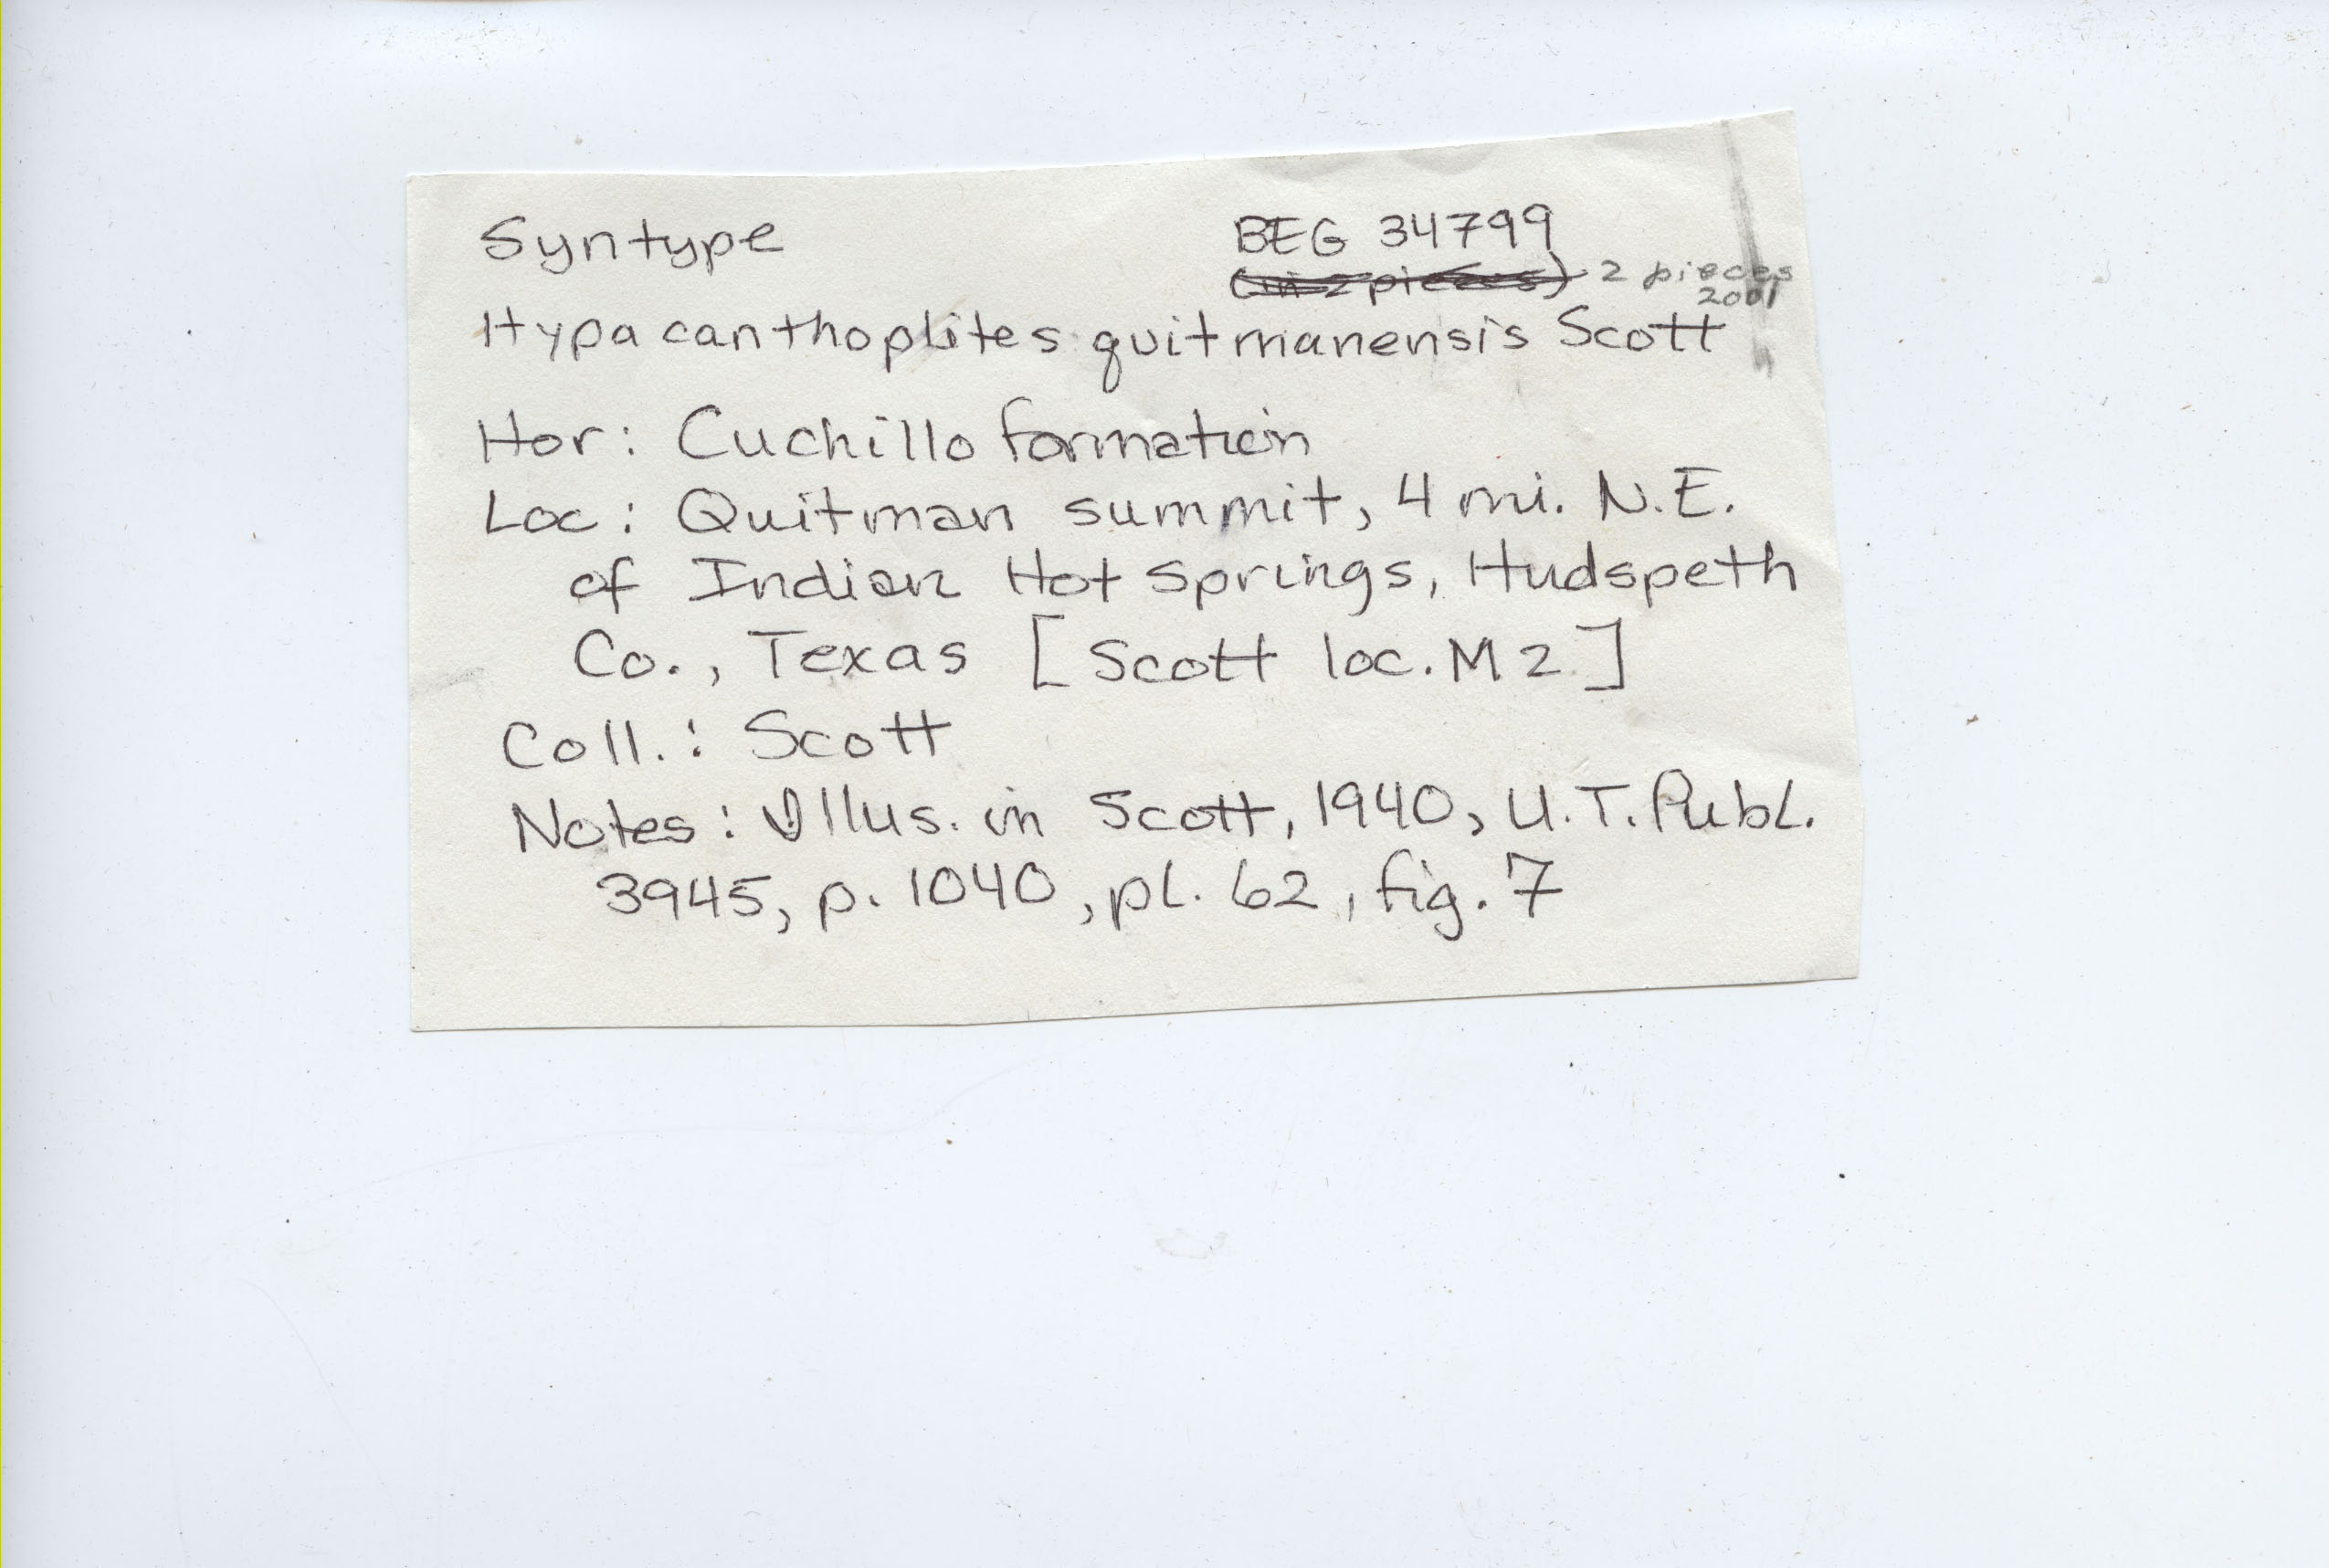 Syntype BEG 34799
(in 2 pieces) 2 pieces
2001
Hypacanthoplites quitmanensis Scott
Hor: Cuchillo formation
Loc: Quitman summit, 4 mi. N.E.
of Indian Hot Springs, Hudspeth
Co., Texas [Scott loc. M2]
Coll.: Scott
Notes: Illus. in Scott, 1940, U.T. Publ.
3945, p. 1040, pl. 62, fig. 7